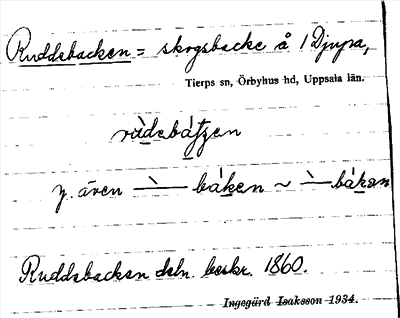 Ruddsbacken = skogsbacke å / Djupa,
Tierps sn, Örbyhus hd, Uppsala län.
rùdsbátjen
även — báken ~ — bákan
Ruddsbacken dsln. beskr. 1860.
Ingegärd Isaksson 1934.